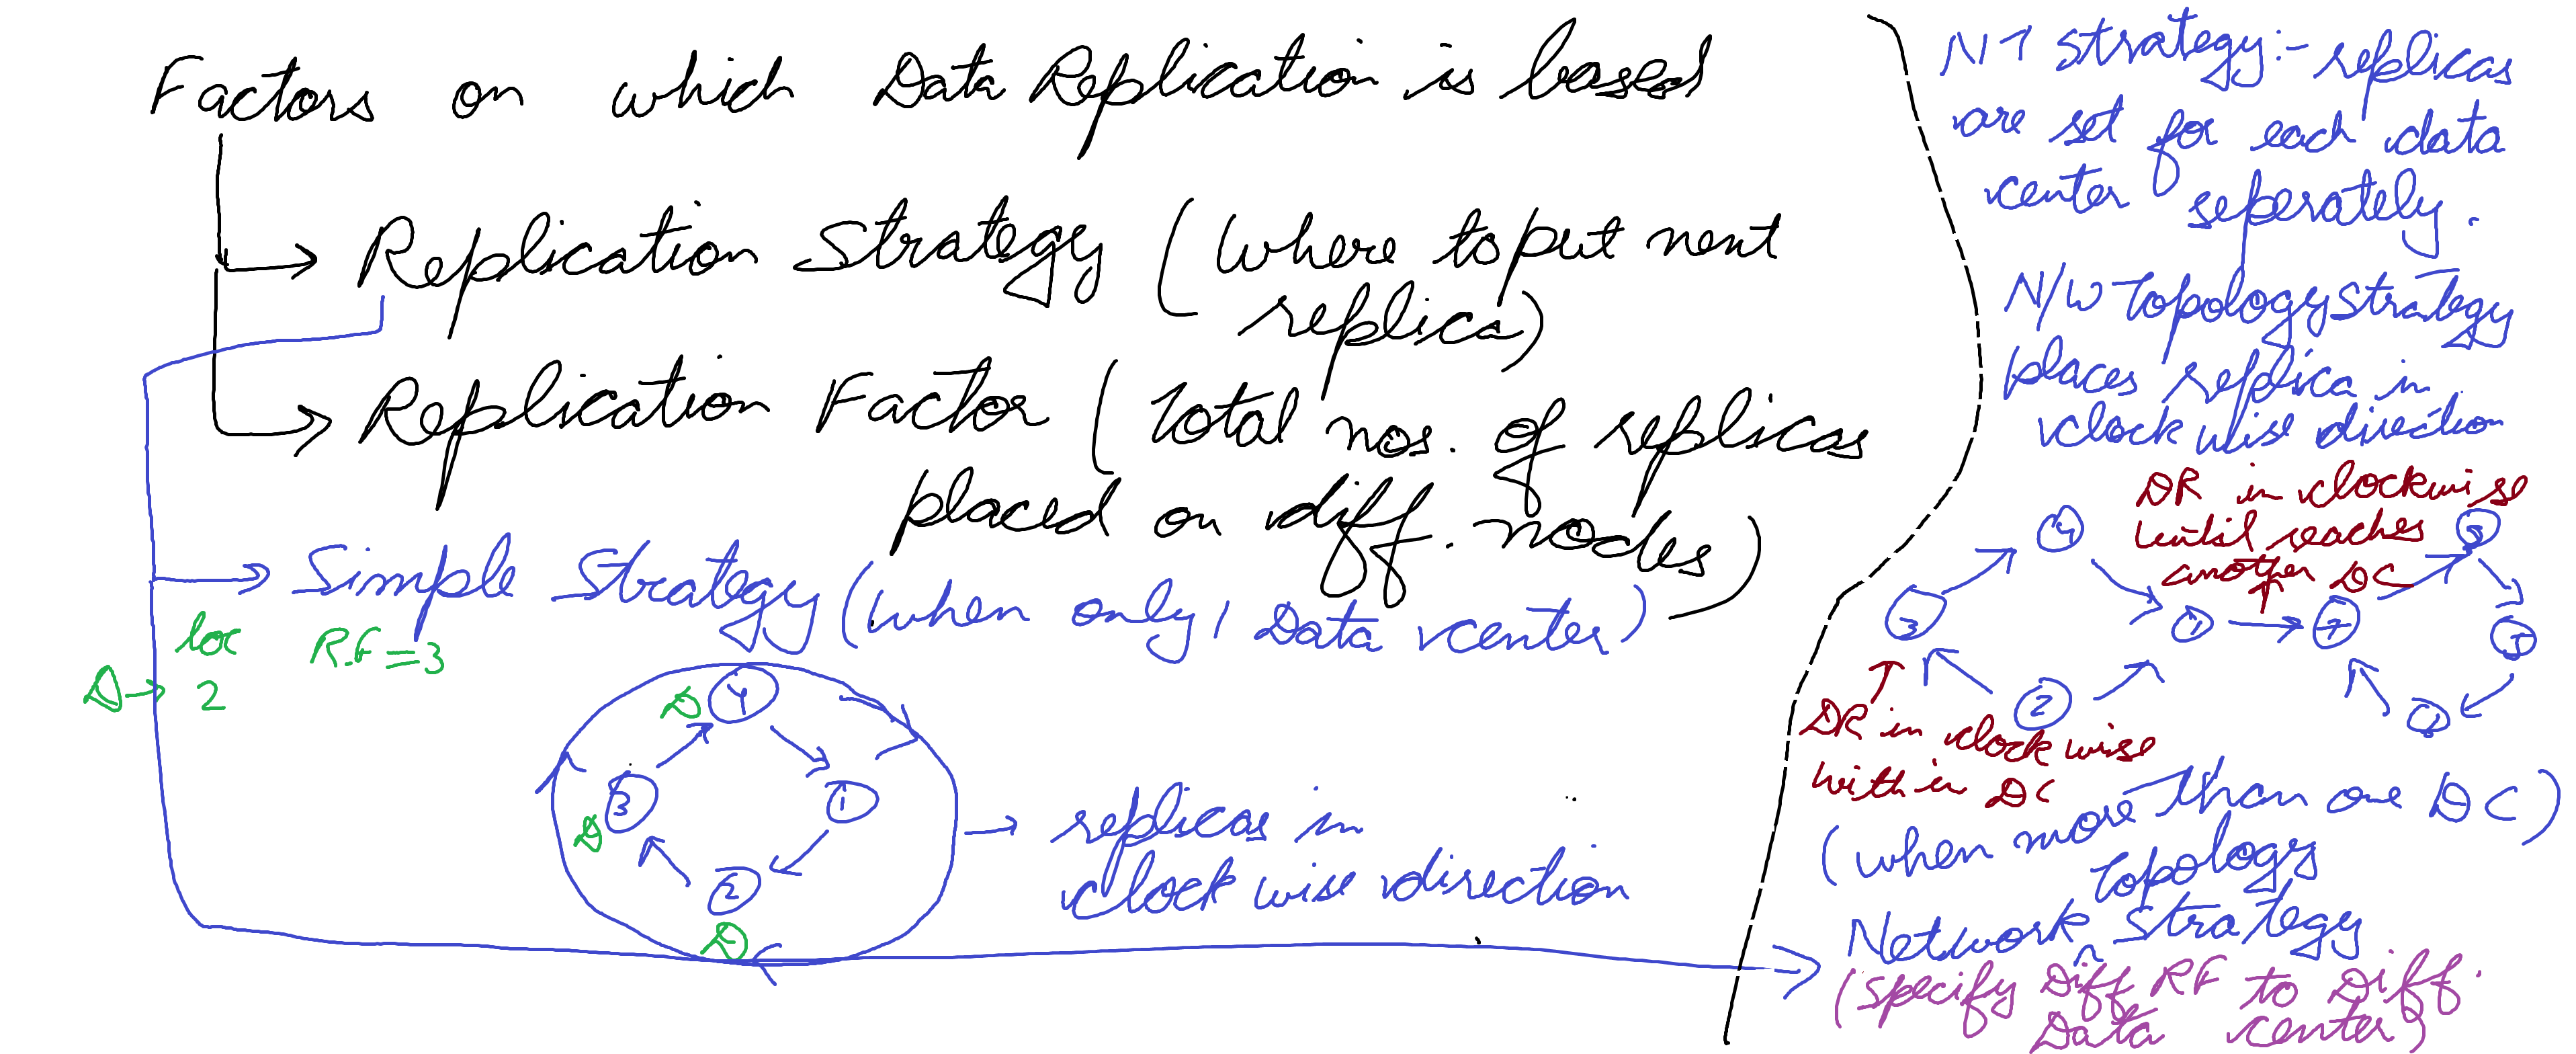 Factors on which Data Replication is based
Replication Strategy (where to put next
replica)
Replication Factor (Total nos. of replicas
placed on diff. nodes)
Simple Strategy (when only 1 Data center)
loc R.F=3
D→ 2
D 4
D 3
1
2
D
→ replicas in
clock wise direction
NT strategy:- replicas
are set for each data
center seperately.
N/W Topology Strategy
places replica in
clock wise direction
DR in clockwise
until reaches
another DC
4
3
1
2
DR in clock wise
with in DC
(when more than one DC)
topology
Network ^ Strategy
(specify Diff RF to Diff.
Data center)